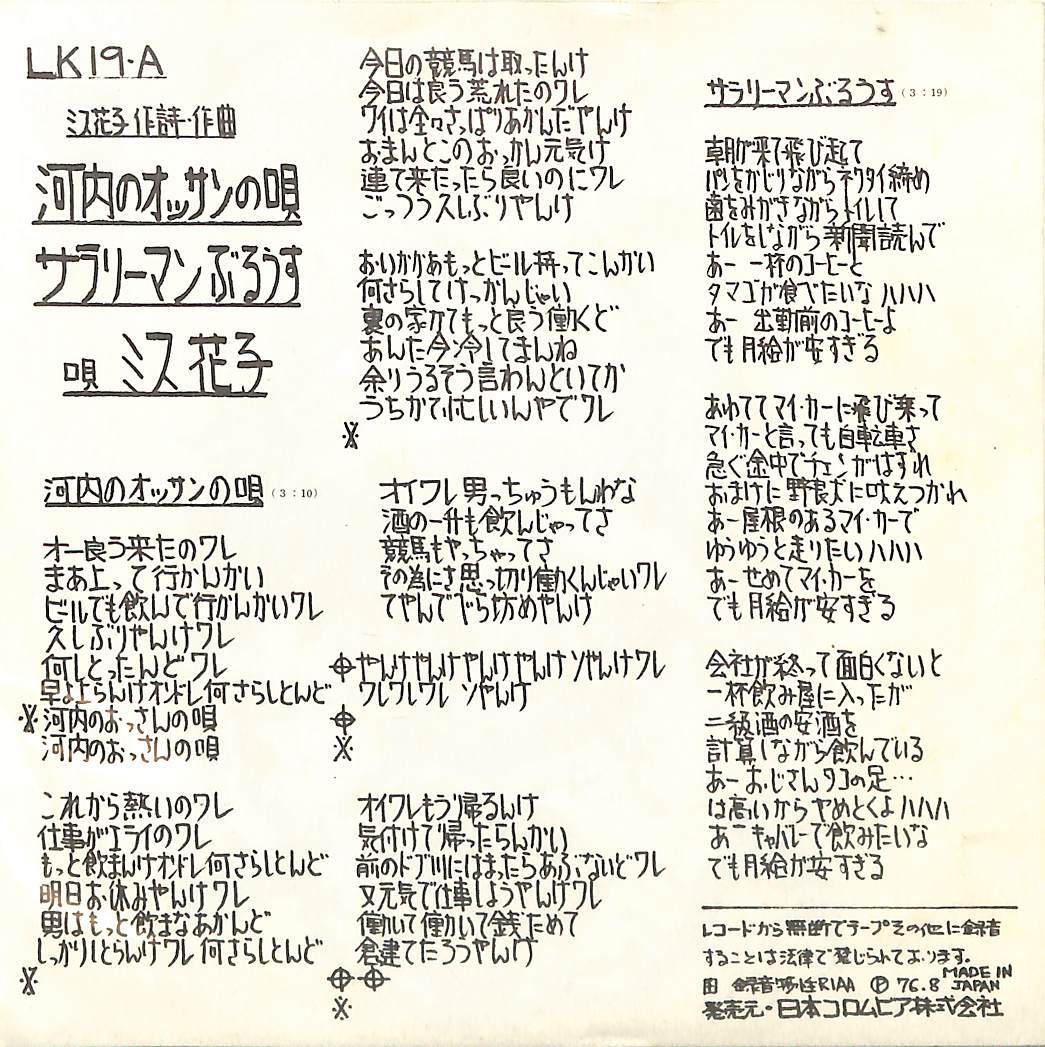 LK19・A
ミス花子 作詩・作曲
河内のオッサンの唄
サラリーマンぶるうす
唄 ミス花子
河内のオッサンの唄 (3:10)
オー良う来たのワレ
まあ上って行かんかい
ビールでも飲んで行かんかいワレ
久しぶりやんけワレ
何しとったんどワレ
早よ上らんけオンドレ何さらしとんど
※河内のおっさんの唄
河内のおっさんの唄
これから熱いのワレ
仕事がエライのワレ
もっと飲まんけオンドレ何さらしとんど
明日お休みやんけワレ
男はもっと飲まなあかんど
しっかりしとらんけワレ何さらしとんど
※
今日の競馬は取ったんけ
今日は良う荒れたのワレ
ワイは全々さっぱりあかんだやんけ
おまんとこのおっかん元気け
連て来たったら良いのにワレ
ごっつう久しぶりやんけ
おいかかあもっとビール持ってこんかい
何さらしてけっかんじゃい
裏の家かてもっと良う働くど
あんた今冷してまんね
余りうるそう言わんといてか
うちかて忙しいんやでワレ
※
オイワレ男っちゅうもんわな
酒の一升も飲んじゃってさ
競馬もやっちゃってさ
その為にさ思っ切り働くんじゃいワレ
てやんでべら坊めやんけ
⌖やんけやんけやんけやんけソやんけワレ
ワレワレワレ ソやんけ
⌖
※
オイワレもう帰るんけ
気付けて帰ったらんかい
前のドブ川にはまったらあぶないどワレ
又元気で仕事しようやんけワレ
働いて働いて銭ためて
倉建てたろうやんけ
⌖⌖
※
サラリーマンぶるうす (3:19)
朝が来て飛び起て
パンをかじりながらネクタイ締め
歯をみがきながらトイレして
トイレをしながら新聞読んで
あー 一杯のコーヒーと
タマゴが食べたいなハハハ
あー 出勤前のコーヒーよ
でも月給が安すぎる
あわててマイ・カーに飛び乗って
マイ・カーと言っても自転車さ
急ぐ途中でチェンがはずれ
おまけに野良犬に吠えつかれ
あー屋根のあるマイ・カーで
ゆうゆうと走りたいハハハ
あーせめてマイ・カーを
でも月給が安すぎる
会社が終って面白くないと
一杯飲み屋に入ったが
二級酒の安酒を
計算しながら飲んでいる
あーおじさんタコの足…
は高いからやめとくよハハハ
あーキャバレーで飲みたいな
でも月給が安すぎる
レコードから無断でテープその他に録音
することは法律で禁じられております。
録音特性RIAA Ⓟ 76.8 MADE IN JAPAN
発売元・日本コロムビア株式会社